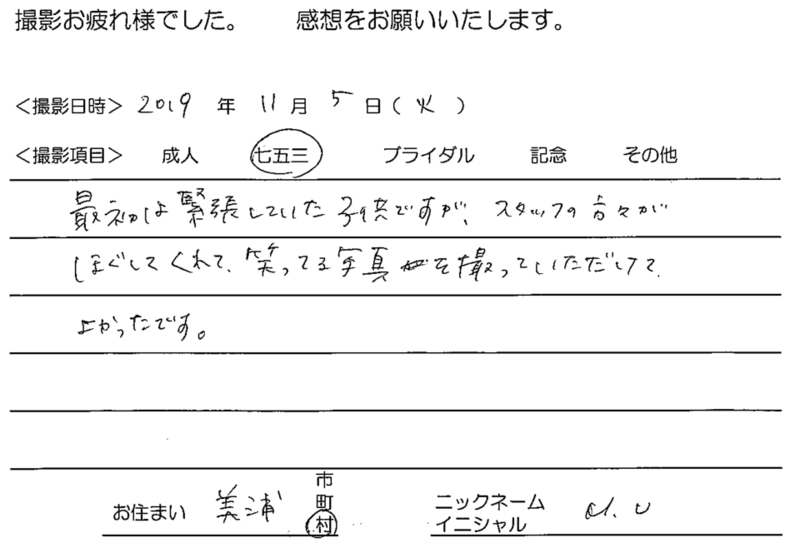 撮影お疲れ様でした。　感想をお願いいたします。
＜撮影日時＞ 2019 年 11 月 5 日（ 火 ）
＜撮影項目＞ 成人 七五三 ブライダル 記念 その他
最初は緊張していた子供ですが、スタッフの方々が
ほぐしてくれて、笑ってる写真を撮っていただけて
よかったです。
お住まい 美浦 市 町 村
ニックネーム
イニシャル